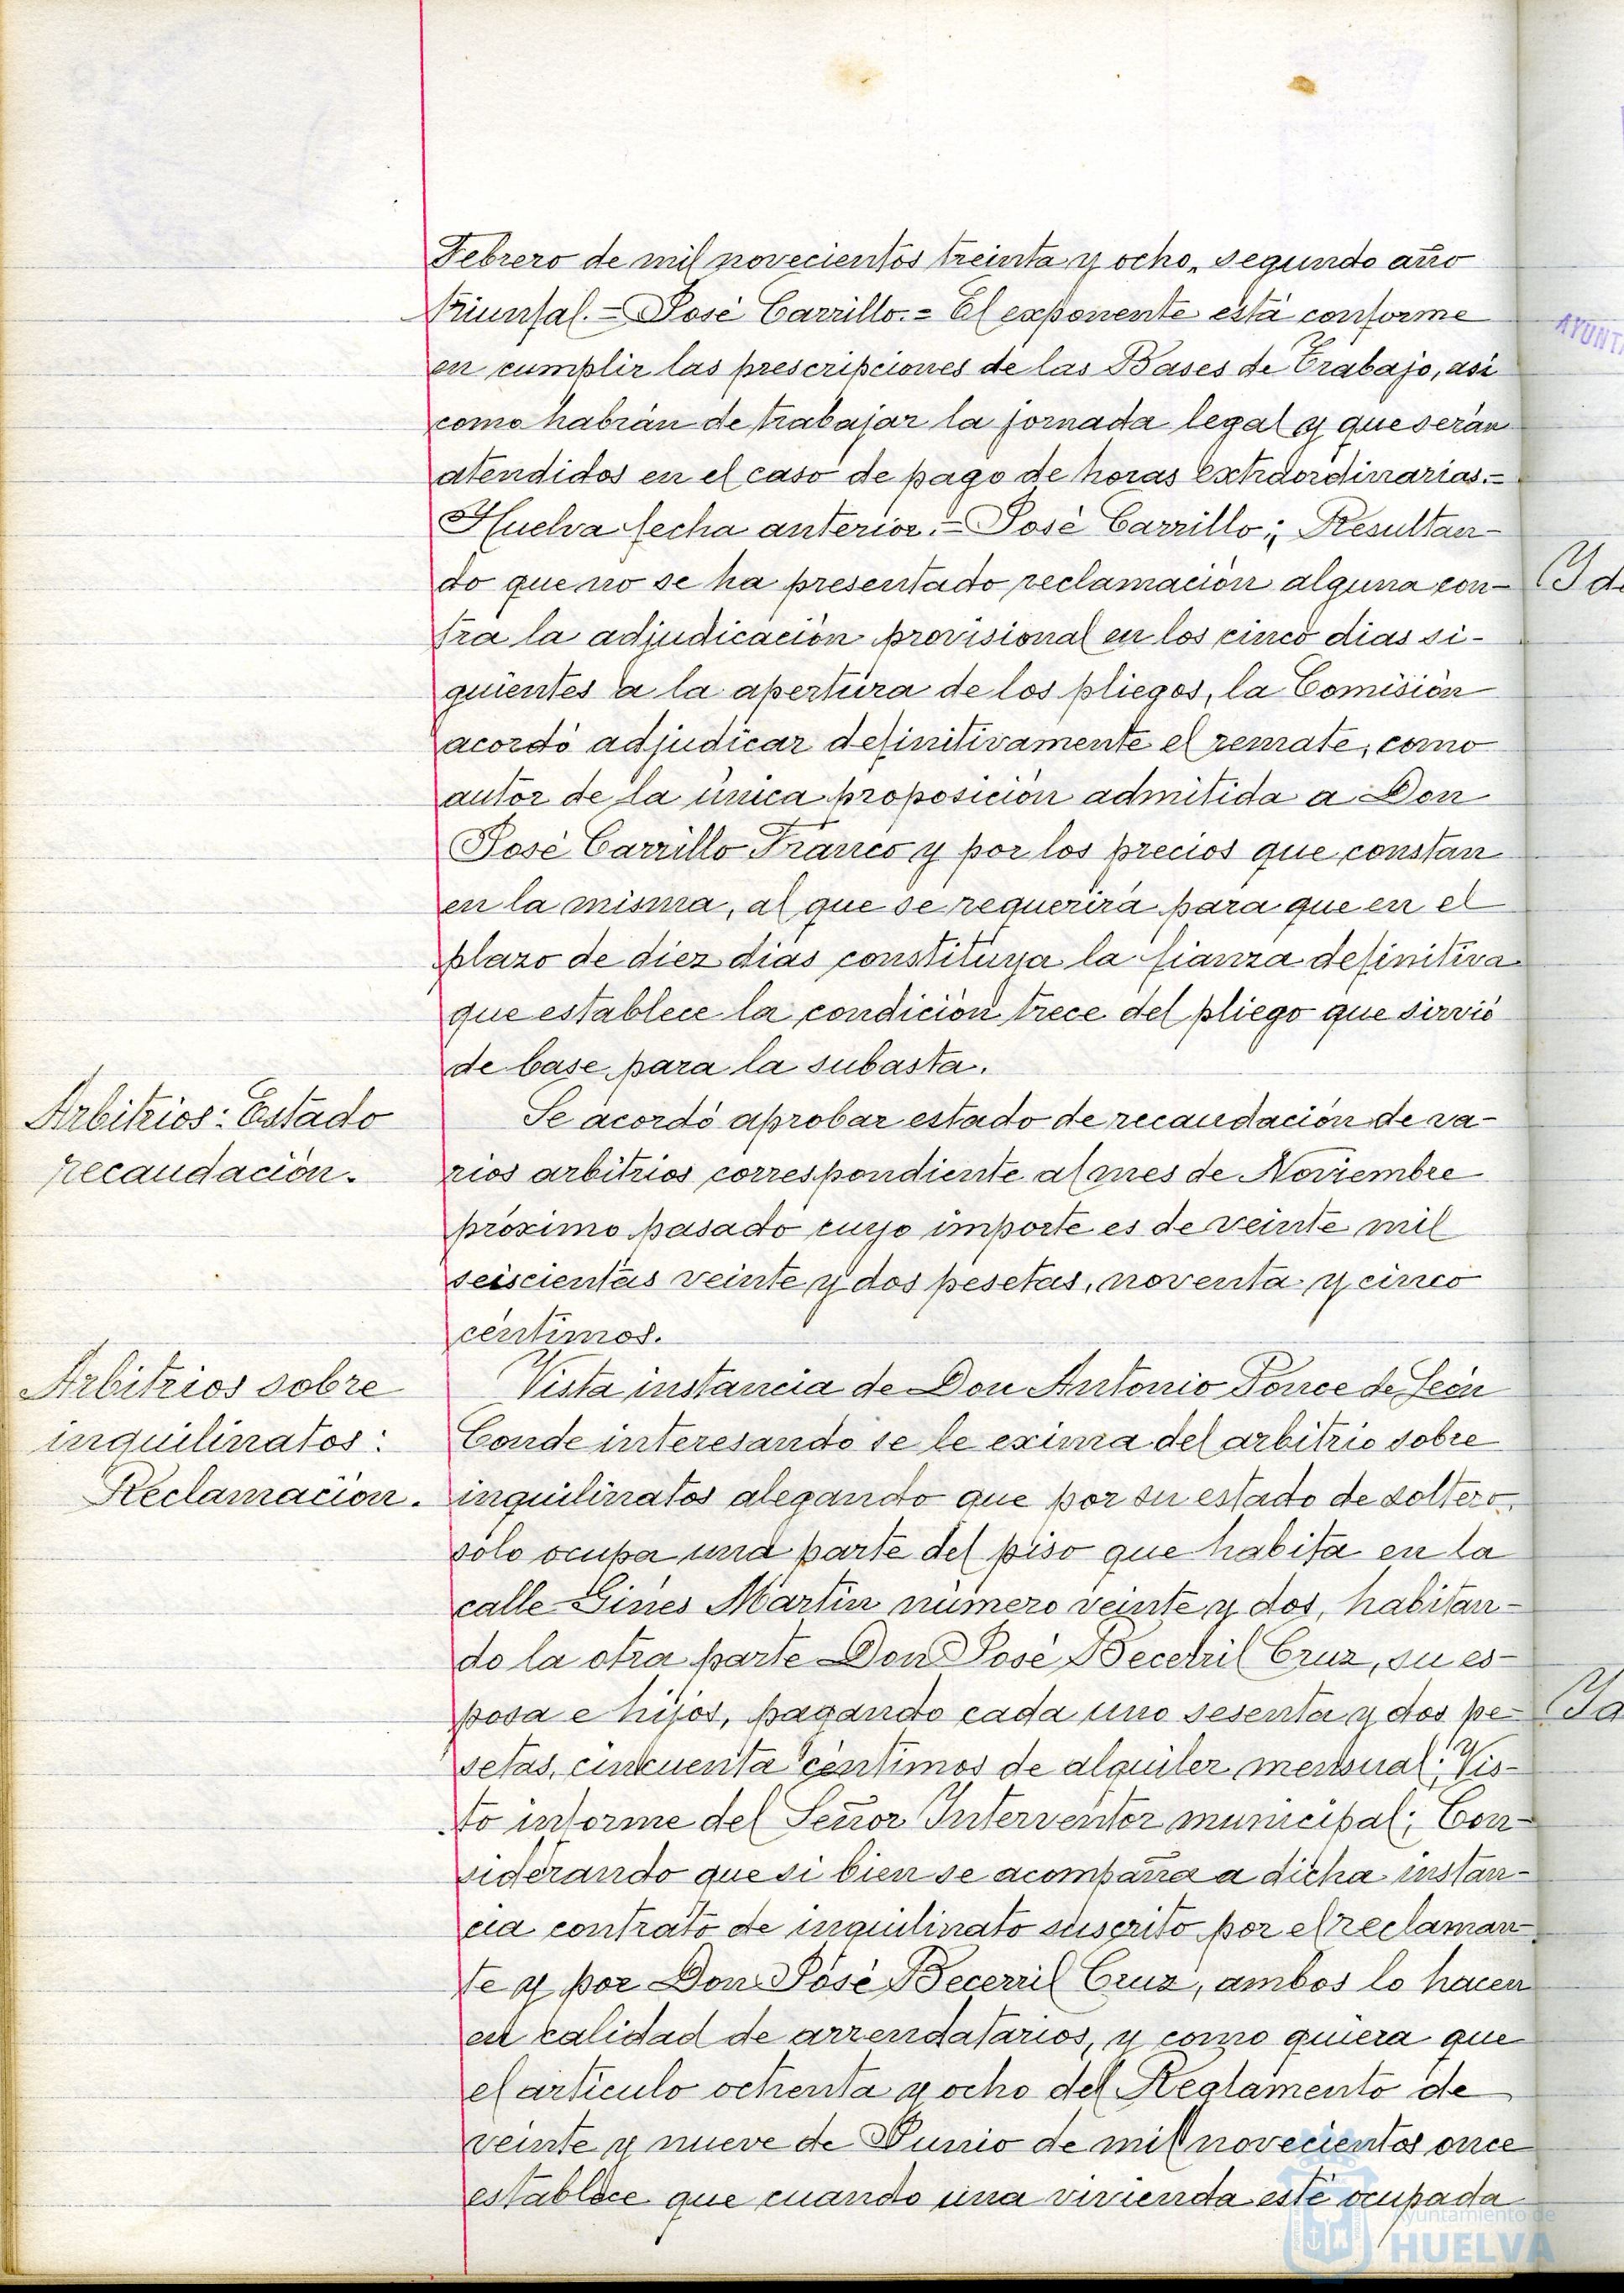 Febrero de mil novecientos treinta y ocho, segundo año
triunfal.= José Carrillo.= El exponente está conforme
en cumplir las prescripciones de las Bases de Trabajo, asi
como habrán de trabajar la jornada legal y que serán
atendidos en el caso de pago de horas extraordinarias.=
Huelva fecha anterior.= José Carrillo; Resultan-
do que no se ha presentado reclamación alguna con-
tra la adjudicación provisional en los cinco dias si-
guientes a la apertura de los pliegos, la Comisión
acordó adjudicar definitivamente el remate, como
autor de la única proposición admitida a Don
José Carrillo Franco y por los precios que constan
en la misma, al que se requerirá para que en el
plazo de diez dias constituya la fianza definitiva
que establece la condición trece del pliego que sirvió
de base para la subasta.
Arbitrios: Estado
recaudación.
Se acordó aprobar estado de recaudación de va-
rios arbitrios correspondiente al mes de Noviembre
próximo pasado cuyo importe es de veinte mil
seiscientas veinte y dos pesetas, noventa y cinco
céntimos.
Arbitrios sobre
inquilinatos:
Reclamación.
Vista instancia de Don Antonio Ponce de León
Conde interesando se le exima del arbitrio sobre
inquilinatos alegando que por su estado de soltero,
solo ocupa una parte del piso que habita en la
calle Ginés Martin número veinte y dos, habitan-
do la otra parte Don José Becerril Cruz, su es-
posa e hijos, pagando cada uno sesenta y dos pe-
setas, cincuenta céntimos de alquiler mensual; Vis-
to informe del Señor Interventor municipal; Con-
siderando que si bien se acompaña a dicha instan-
cia contrato de inquilinato suscrito por el reclaman-
te y por Don José Becerril Cruz, ambos lo hacen
en calidad de arrendatarios, y como quiera que
el articulo ochenta y ocho del Reglamento de
veinte y nueve de Junio de mil novecientos once
establece que cuando una vivienda esté ocupada
AYUNT
Id
Ayuntamiento de
HUELVA